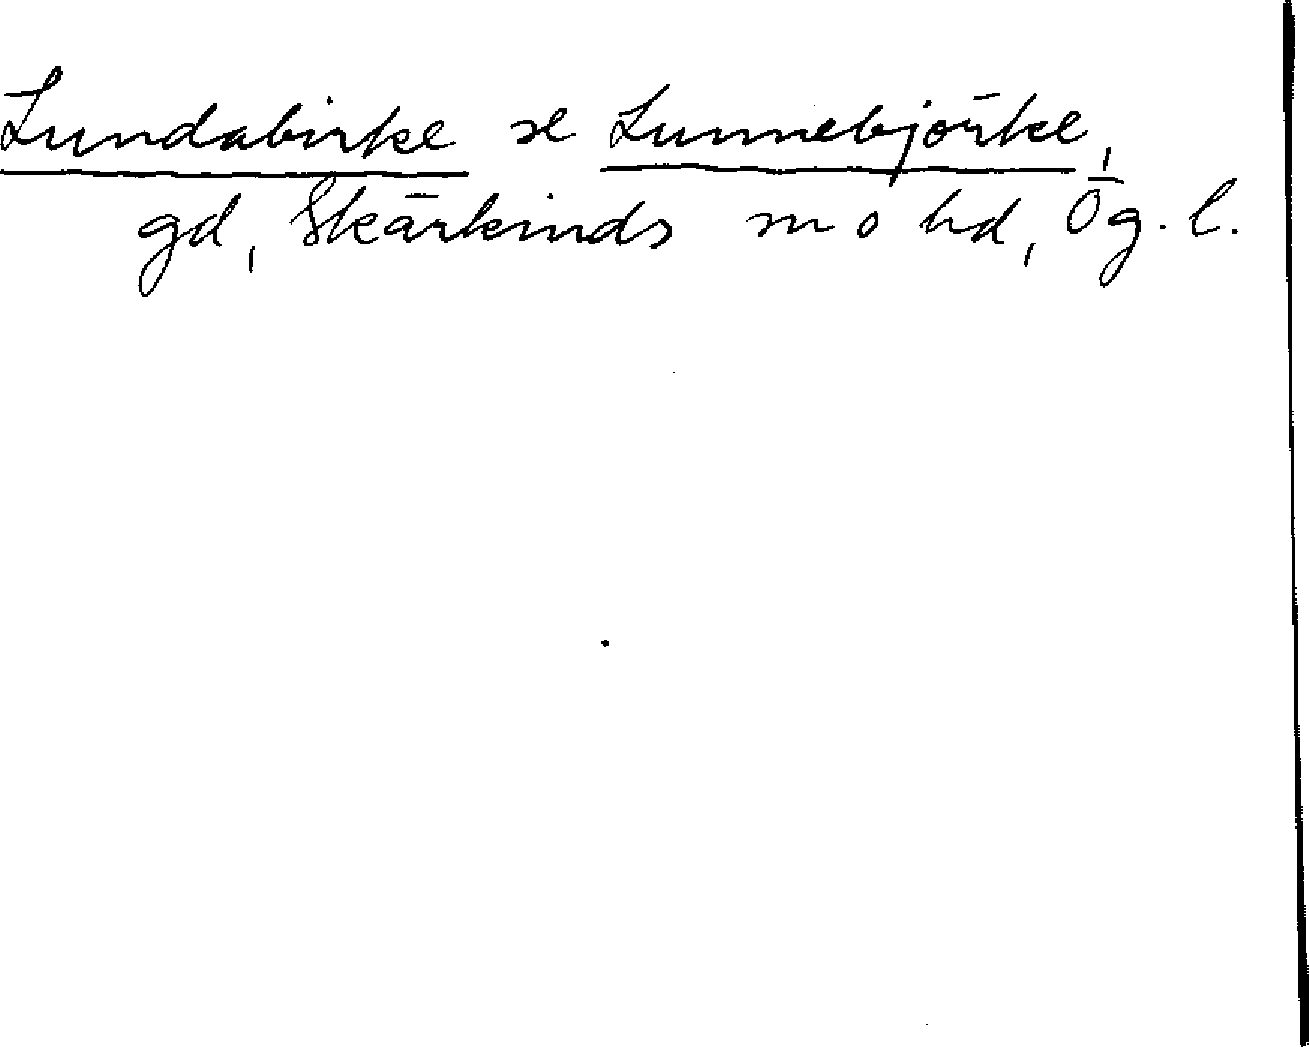 Lundabirke se Lunnebjörke,
gd, Skärkinds sn o hd, Ög. l.